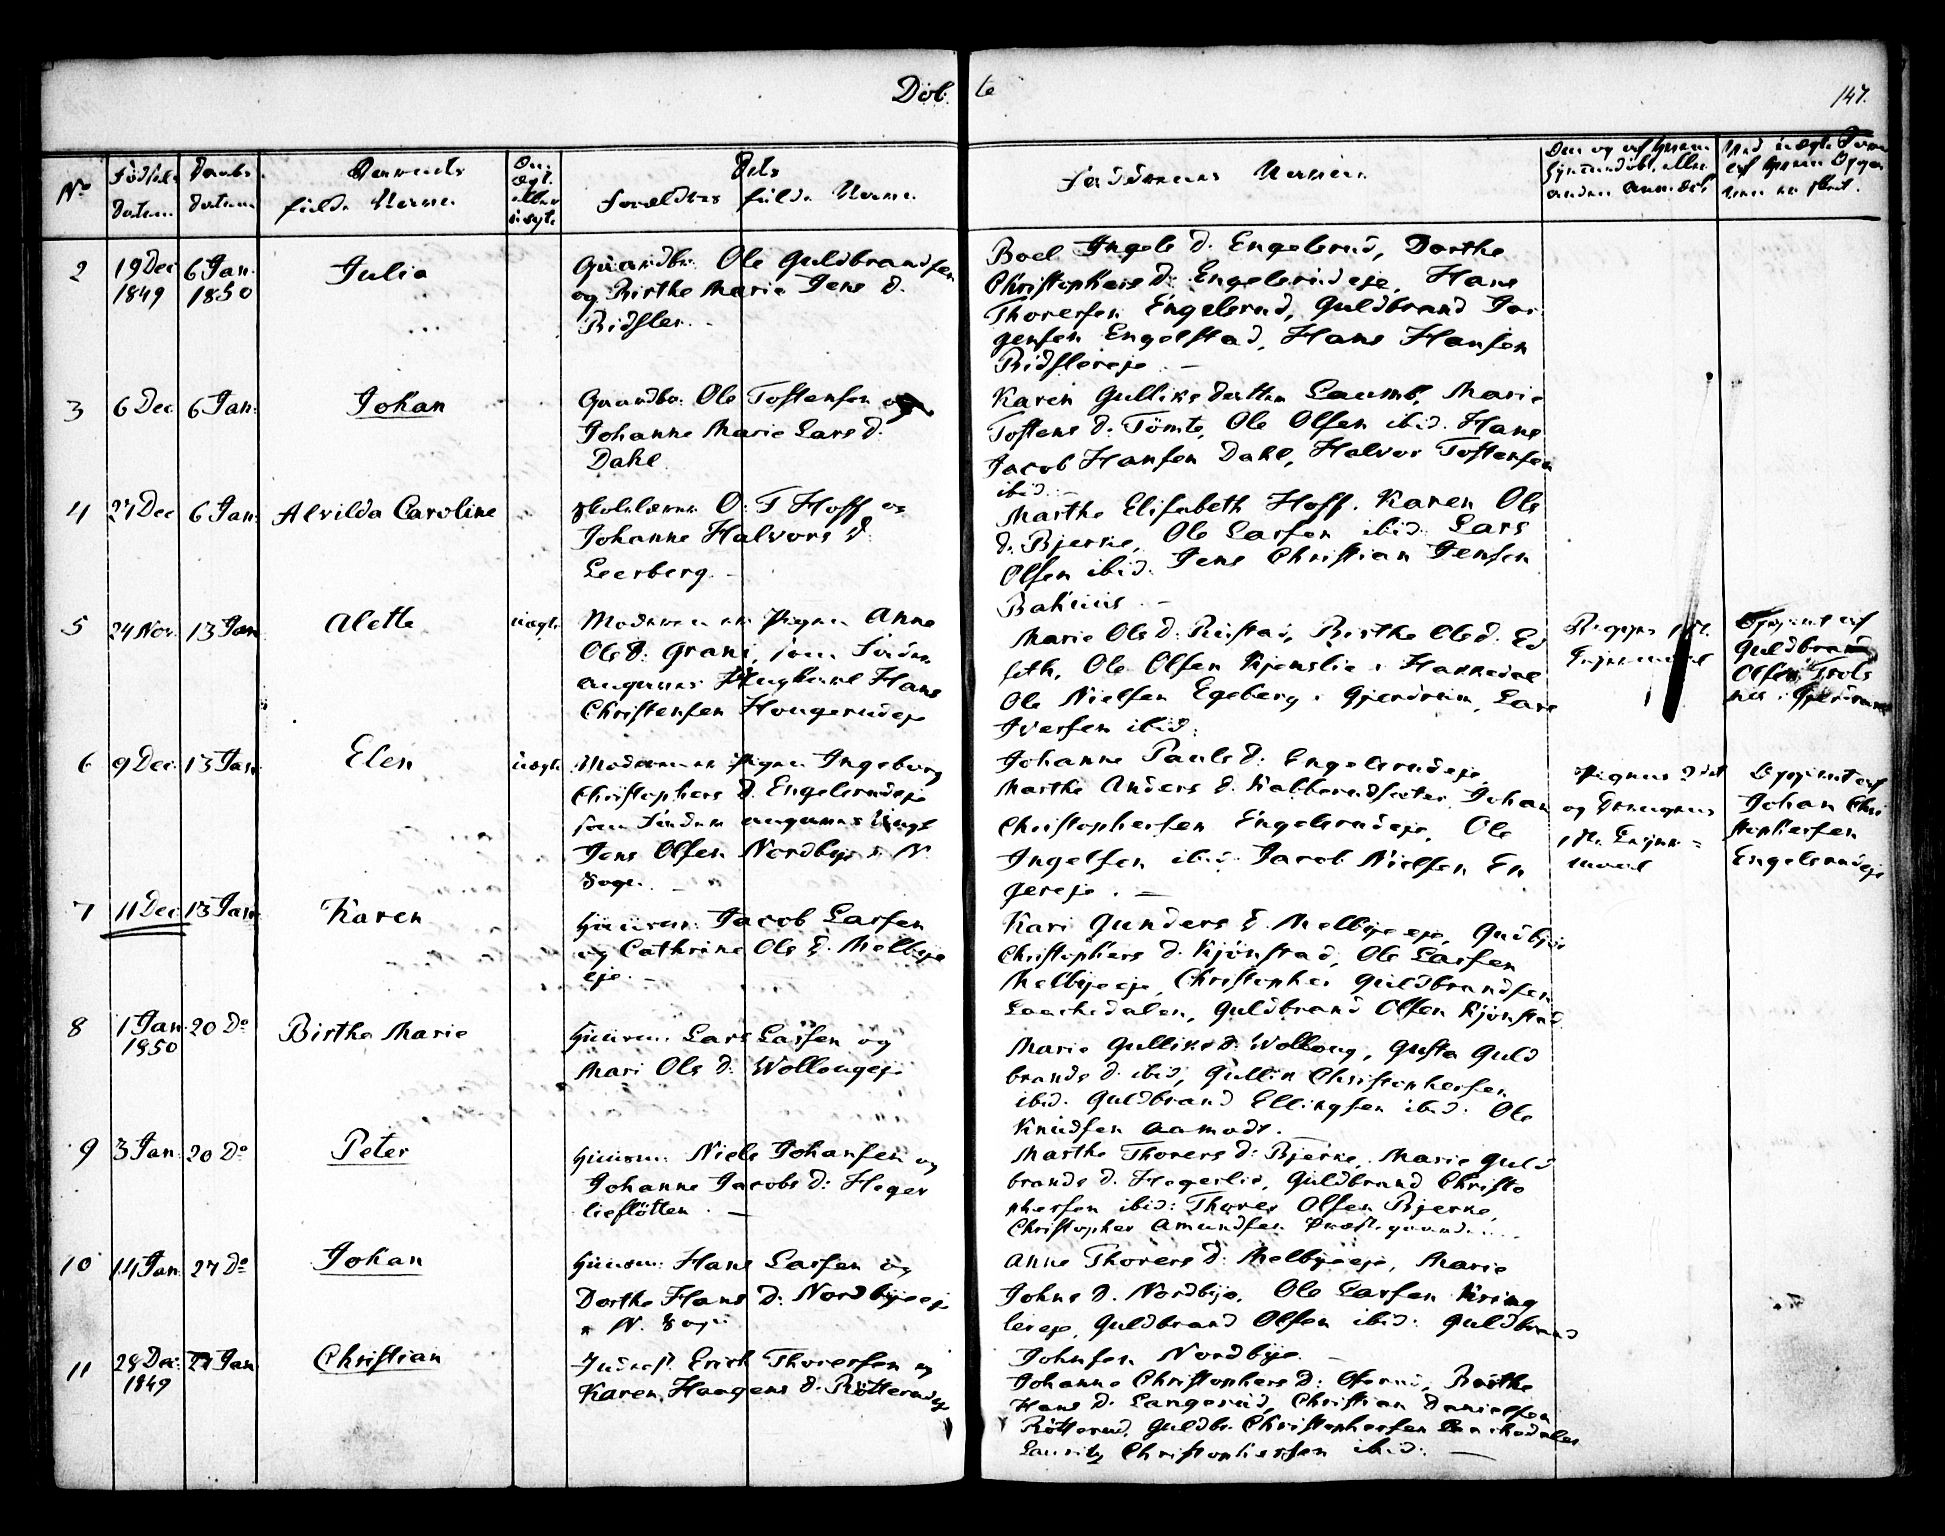 Döbte
147.
No
Födsels Datum
Daabs Datum
Barnets fulde Navn
Om ægte eller uægte
Dets Forældres fulde Navne
Faddernes Navne
2
19 Dec 1849
6 Jan. 1850
Julia
Gaardbr. Ole Guldbrandsen
og Birthe Marie Jens D.
Ridsler.
Boel Ingels D. Engelsrud, Dorthe
Christophers D. Engelsrudeje, Hans
Thoresen Engelsrud, Guldbrand Jör
gensen Engelstad, Hans Hansen
Ridslereje. —
3
6 Dec
6 Jan.
Johan
Gaardbr. Ole Tostensen og
Johanne Marie Lars D.
Dahl
Karen Gulliksdatter Laumb, Marie
Tostens D. Tömte, Ole Olsen ibid. Hans
Jacob Hansen Dahl, Halvor Tostensen
ibid. —
4
27 Dec
6 Jan.
Alvilda Caroline
Skolelærer O. T Hoff og
Johanne Halvors D.
Leerberg. —
Marthe Elisabeth Hoff. Karen Ols
D. Bjerke, Ole Larsen ibid. Lars
Olsen ibid. Jens Christian Jensen
Bahuus. —
5
24 Nov.
13 Jan
Alette
uægte
Moderen er Pigen Anne
Ols D. Grani, som Fader
angives Ungkarl Hans
Christensen Hougerudeje
Marie Ols D. Rustad, Birthe Ols D. Ed
seth, Ole Olsen Kjemslie i Hakkedal
Ole Nielsen Egeberg i Gjerdrum, Lars
Iversen ibid.
Opgivet af
Guldbrand
Olsen
i Gjerdrum
6
9 Dec
13 Jan.
Elen
uægte
Moderen er Pigen Ingeborg
Christophers D. Engelsrudeje
som Fader angives Ungk.
Jens Olsen Nordbye i N.
Sogn. —
Johanne Pauls D. Engelsrudeje,
Marthe Anders D. Kabberudsæter, Johan
Christophersen Engelsrudeje, Ole
Ingelsen ibid. Jacob Nielsen En
gereje. —
Pigens 2det
og
Lejer=
maal
Opgivet af
Johan Chri
stophersen
Engelsrudeje
7
11 Dec
13 Jan.
Karen
Huusm. Jacob Larsen
og Cathrine Ols D. Melbye
eje. —
Kari Gunders D. Melbyeeje, Gudbjör
Christophers D. Kjönstad, Ole Larsen
Melbyeeje, Christopher Guldbrandsen
Laachedalen, Guldbrand Olsen Kjönstad
8
1 Jan. 1850
20 Do
Birthe Marie
Huusm. Lars Larsen og
Mari Ols D. Wollougeje
Marie Gulliks D. Wolloug, Gusta Guld
brands D. ibid, Gullik Christophersen
ibid. Guldbrand Ellingsen ibid. Ole
Knudsen Aamodt.
9
3 Jan.
20 Do
Peter
Huusm. Niels Johansen og
Johanne Jacobs D. Heger
lieslötten. —
Marthe Thorers D. Bjerke, Marie Guld
brands D. Hegerlie, Guldbrand Christo
phersen ibid: Thorer Olsen Bjerke,
Christopher Amundsen
10
14 Jan.
27 Do
Johan
Huusm. Hans Larsen og
Dorthe Hans D. Nordbyeeje
i N. Sogn
Anne Thorers D. Melbyeeje, Marie
Johns D. Nordbye, Ole Larsen Kring
lereje, Guldbrand Olsen ibid. Guldbrand
Johnsen Nordbye. —
11
28 Dec. 1849
27 Jan
Christian
Inderst. Erich Thoresen og
Karen Haagens D. Rötterudeje
Johanne Christophers D. Ofsrud, Birthe
Hans D. Langerud, Christian Danielsen
Rötterud, Guldbr. Christophersen Laachedalen
Lauritz Christophersen ibid. —